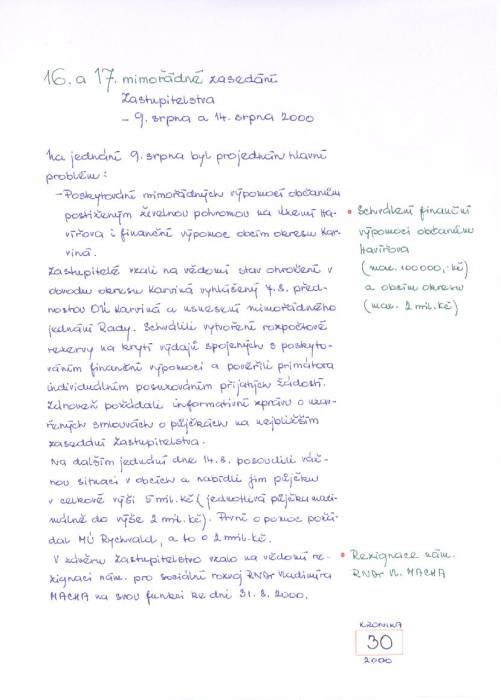 16. a 17. mimořádné zasedání
Zastupitelstva
- 9. srpna a 14. srpna 2000
Na jednání 9. srpna byl projednán hlavní
problém:
- Poskytování mimořádných výpomocí občanům
postiženým živelnou pohromou na území Ha-
vířova i finanční výpomoc obcím okresu Kar-
viná.
• Schválení finanční
výpomoci občanům
Havířova
(max. 100 000,- Kč)
a obcím okresu
(max. 2 mil. Kč)
Zastupitelé vzali na vědomí stav ohrožení v
obvodu okresu Karviná vyhlášený 7. 8. před-
nostou OÚ Karviná a usnesení mimořádného
jednání Rady. Schválili vytvoření rozpočtové
rezervy na krytí výdajů spojených s poskyto-
váním finanční výpomoci a pověřili primátora
individuálním posuzováním přijatých žádostí.
Zároveň požádali informativní zprávu o uzav-
řených smlouvách o půjčkách na nejbližším
zasedání Zastupitelstva.
Na dalším jednání dne 14. 8. posoudili váž-
nou situaci v obcích a nabídli jim půjčku
v celkové výši 5 mil. Kč (jednotlivá půjčka maxi-
málně do výše 2 mil. Kč). První o pomoc požá-
dal MÚ Rychvald, a to o 2 mil. Kč.
V závěru Zastupitelstvo vzalo na vědomí re-
zignaci nám. pro sociální rozvoj RNDr Vladimíra
MACHA na svou funkci ke dni 31. 8. 2000.
• Rezignace nám.
RNDr V. MACHA
KRONIKA
30
2000